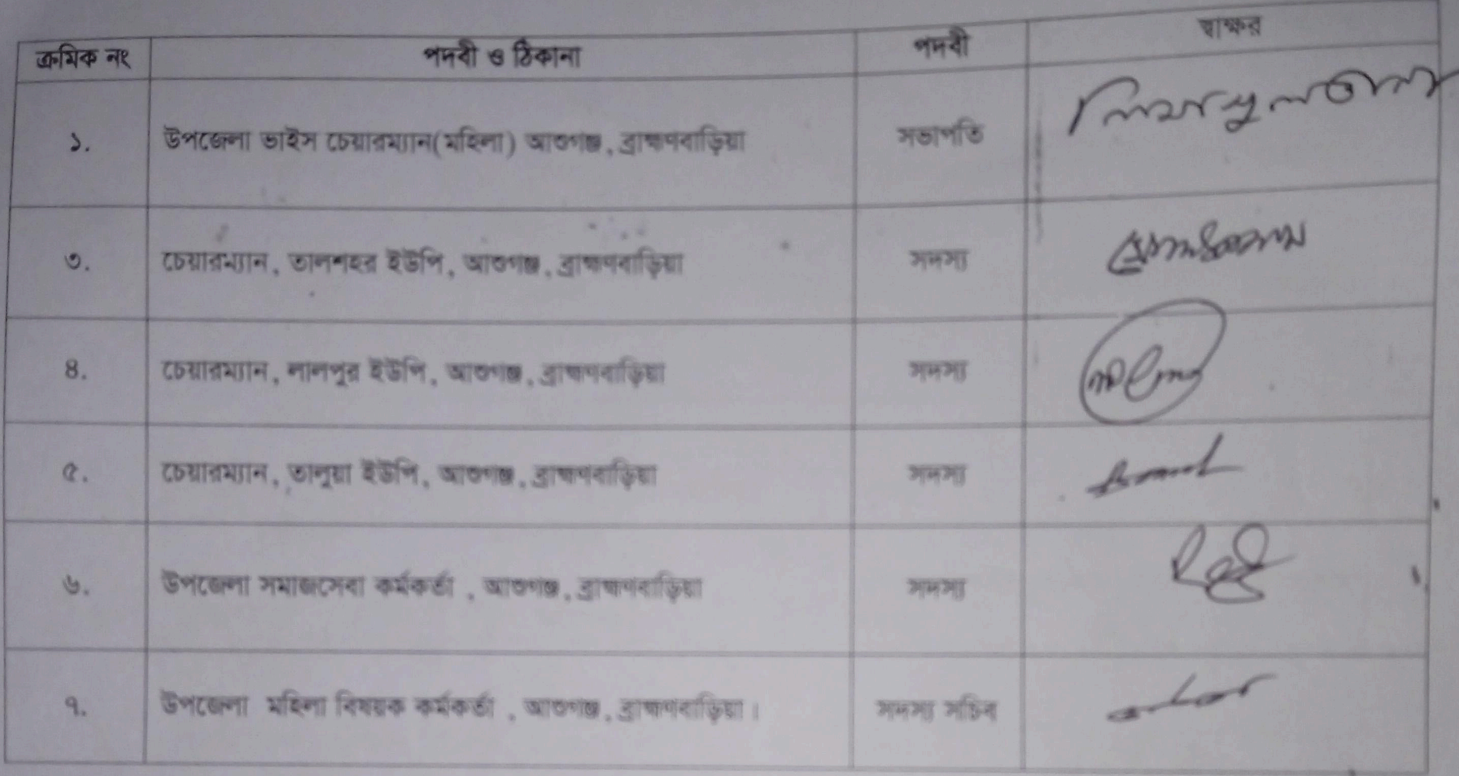 ক্রমিক নং পদবী ও ঠিকানা পদবী স্বাক্ষর
১. উপজেলা ভাইস চেয়ারম্যান(মহিলা) আশুগঞ্জ, ব্রাহ্মণবাড়িয়া সভাপতি
৩. চেয়ারম্যান, তালশহর ইউপি, আশুগঞ্জ, ব্রাহ্মণবাড়িয়া সদস্য
৪. চেয়ারম্যান, লালপুর ইউপি, আশুগঞ্জ, ব্রাহ্মণবাড়িয়া সদস্য
৫. চেয়ারম্যান, তারুয়া ইউপি, আশুগঞ্জ, ব্রাহ্মণবাড়িয়া সদস্য
৬. উপজেলা সমাজসেবা কর্মকর্তা , আশুগঞ্জ, ব্রাহ্মণবাড়িয়া সদস্য
৭. উপজেলা মহিলা বিষয়ক কর্মকর্তা , আশুগঞ্জ, ব্রাহ্মণবাড়িয়া। সদস্য সচিব